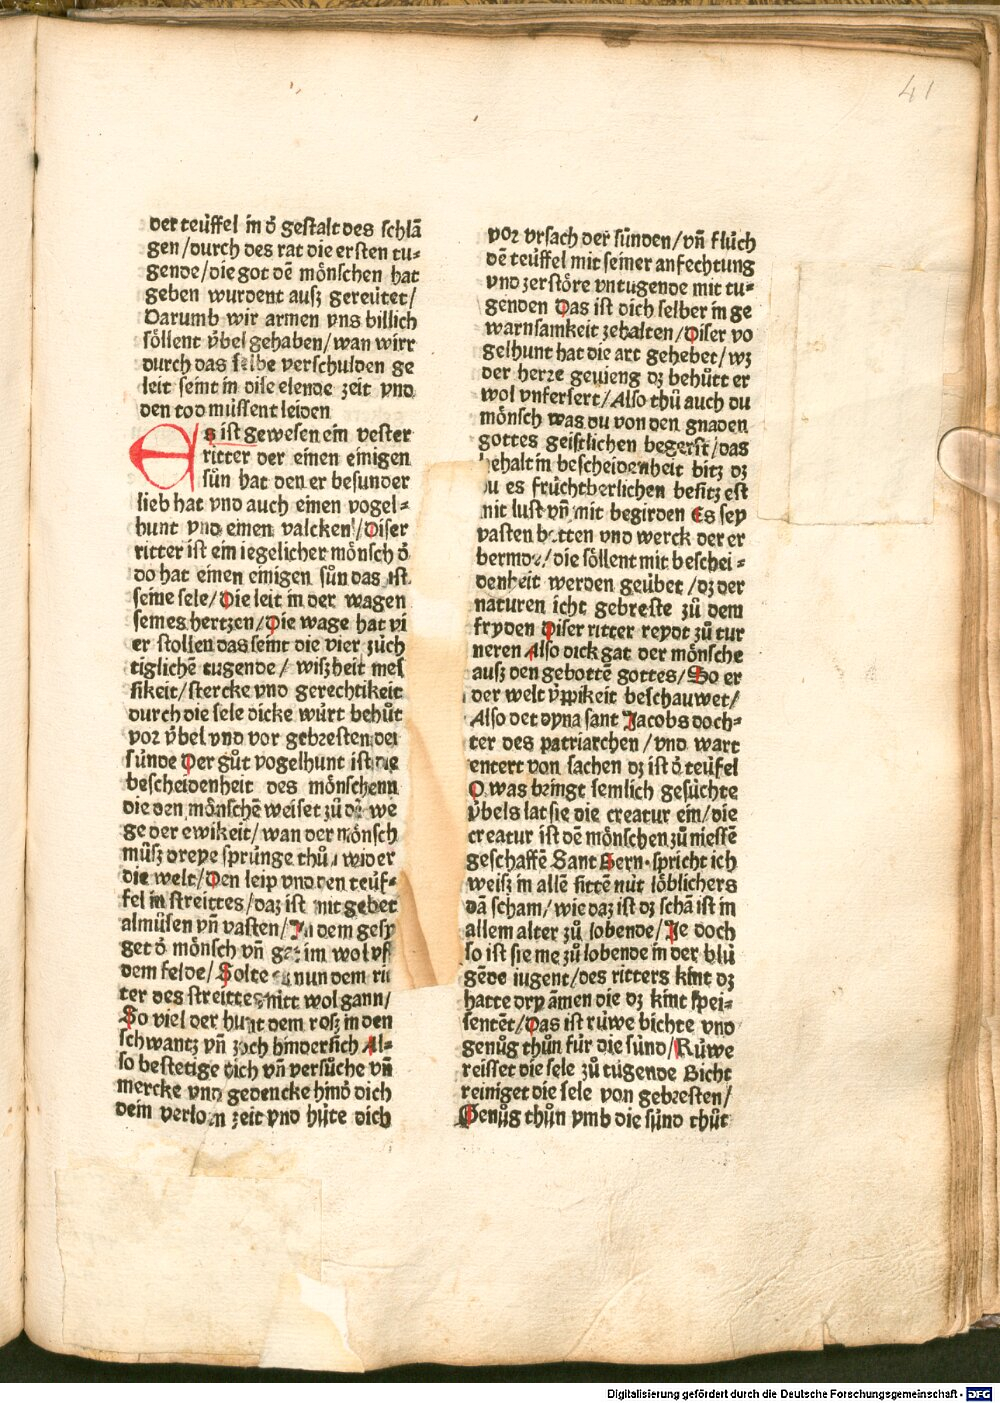 41
der teüffel in d̕ gestalt des schlā
gen/durch des rat die ersten tu⸗
gende/die got dē mönschen hat
geben wurdent ausz gereütet/
Darumb wir armen vns billich
söllent v̈bel gehaben/wan wirr
durch das selbe verschulden ge
leit seint in dise elende zeit vnd
den tod müssent leiden
Es ist gewesen ein vester
ritter der einen einigen
sůn hat den er besunder
lieb hat vnd auch einen vogel⸗
hunt vnd einen valcken/Diser
ritter ist ein iegelicher mönsch d̕
do hat einen einigen sůn das ist
seine sele/Die leit in der wagen
seines hertzen/Die wage hat vi
er stollen das seint die vier züch
tiglichē tugende/wiszheit mes
sikeit/stercke vnd gerechtikeit
durch die sele dicke würt behůt
vor v̈bel vnd vor gebresten der
sünde Der gůt vogelhunt ist die
bescheidenheit des mönschenn
die den mönschē weiset zů dē we
ge der ewikeit/wan der mönsch
můsz dreye sprünge thůn wider
die welt/Den leip vnd den teüf⸗
fel in streittes/daz ist mit gebet
almůsen vñ vasten/In dem gesp
get d̕ mönsch vñ im wol vf
dem felde/Solte nun dem rit
ter des streittes nitt wol gann/
So viel der hunt dem rosz in den
schwantz vñ zoch hindersich Al⸗
so bestetige dich vñ versůche vñ
mercke vnd gedencke hind̕ dich
dein verlorn zeit vnd hüte dich
vor vrsach der sünden/vñ flůch
dē teüffel mit seiner anfechtung
vnd zerstöre vntugende mit tu⸗
genden Das ist dich selber in ge
warnsamkeit zehalten/Diser vo
gelhunt hat die art gehebet/wz
der herre gevieng dz behůtt er
wol vnfersert/Also thů auch du
mönsch was du von den gnaden
gottes geistlichen begerst/das
behalt in bescheidenheit bitz dz
du es früchtberlichen besitzest
mit lust vñ mit begirden Es sey
vasten betten vnd werck der er
bermde/die söllent mit beschei⸗
denheit werden geübet/dz der
naturen icht gebreste zů dem
fryden Diser ritter reydt zů tur
neren Also dick gat der mönsche
ausz den gebottē gottes/So er
der welt v̈ppikeit beschauwet/
Also det dyna sant Jacobs doch⸗
ter des patriarchen/vnd wart
entert von sachen dz ist d̕ teüfel
O was bringt semlich gesůchte
v̈bels lat sie die creatur ein/die
creatur ist dē mönschen zů niessē
geschaffē Sant Bern. spricht ich
weisz in allē sittē nüt löblichers
dā scham/wie daz ist dz schā ist in
allem alter zů lobende/Je doch
so ist sie me zů lobende in der blů
gēde iugent/des ritters kint dz
hatte dry āmen die dz kint spei⸗
sentēt/Das ist rüwe bichte vnd
genůg thůn für die sünd/Rüwe
reisset die sele zů tügende Bicht
reiniget die sele von gebresten/
Genůg thůn vmb die sünd thůt
Digitalisierung gefördert durch die Deutsche Forschungsgemeinschaft - DFG